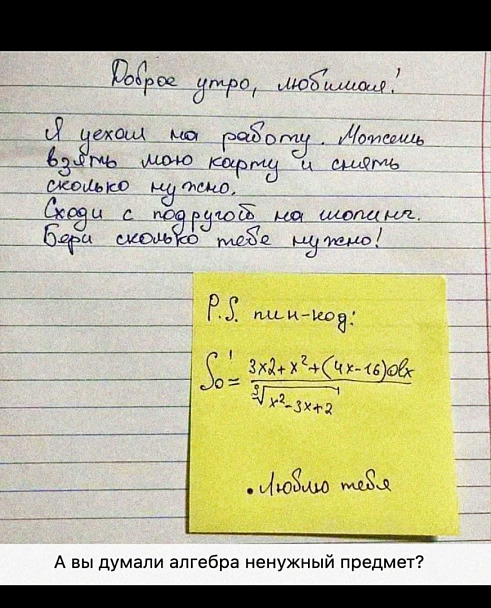 Доброе утро, любимая!
Я уехал на работу. Можешь
взять мою карту и снять
сколько нужно.
Сходи с подругой на шопинг.
Бери сколько тебе нужно!
P.S. пин-код:
∫₀¹ = 3x2+x²+(4x-16)dx
∛x²-3x+2
. Люблю тебя
А вы думали алгебра ненужный предмет?